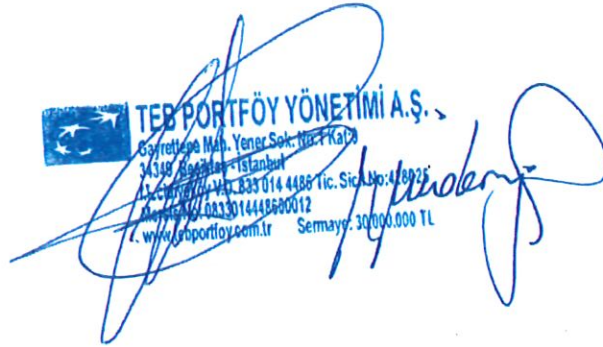 TEB PORTFÖY YÖNETİMİ A.Ş.
Gayrettepe Mah. Yener Sok. No:1 Kat:9
34349 Beşiktaş - İstanbul
V.D. 833 014 4486 Tic. Sicil No:
0833014448600012
www.tebportfoy.com.tr Sermaye: 30.000.000 TL